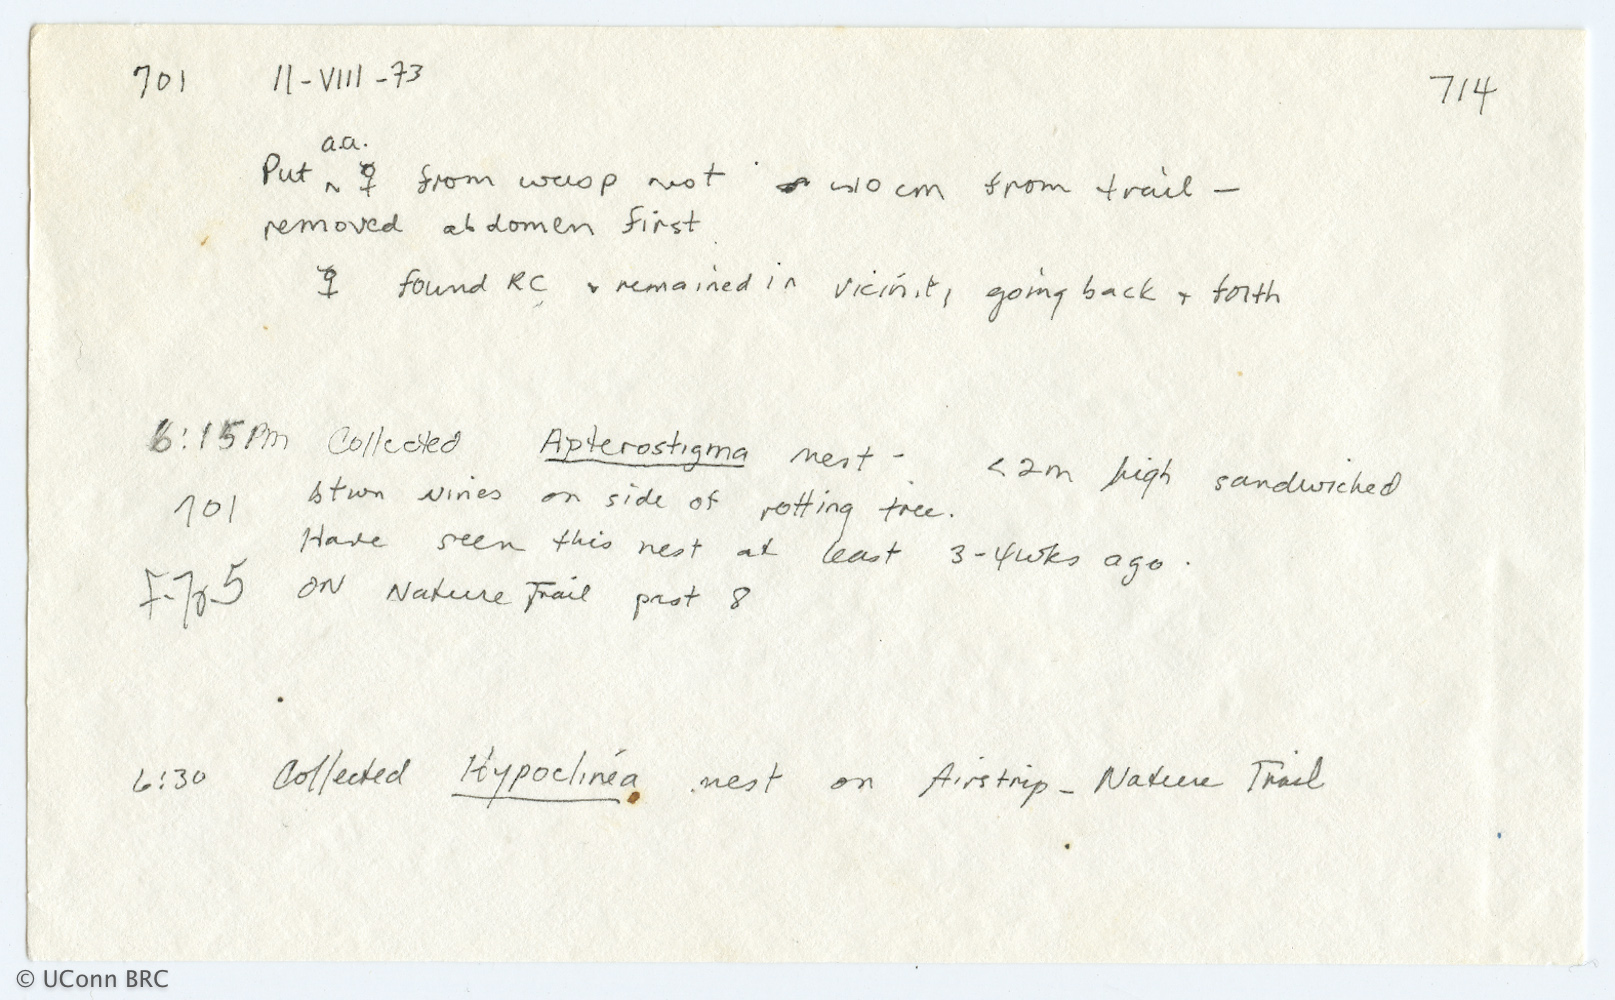 701 11-VIII-73 714
a.a.
Put ~ ☿ from wasp nest ~10 cm from trail —
removed abdomen first
☿ found RC + remained in vicinity going back + forth
6:15 PM Collected Apterostigma nest - <2m high sandwiched
701 btwn vines on side of rotting tree.
Have seen this nest at least 3-4 wks ago.
ON Nature Trail past 8
6:30 Collected Hypoclinea nest on Airstrip - Nature Trail
© UConn BRC